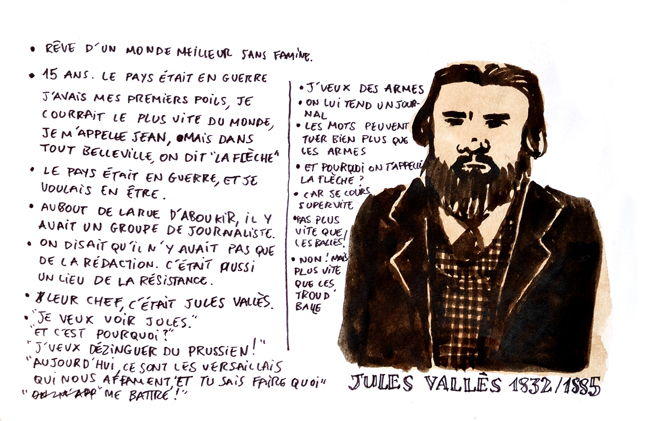 • RÊVE D'UN MONDE MEILLEUR SANS FAMINE.
• 15 ANS. LE PAYS ÉTAIT EN GUERRE
J'AVAIS MES PREMIERS POILS, JE
COURRAIT LE PLUS VITE DU MONDE,
JE M'APPELLE JEAN, MAIS DANS
TOUT BELLEVILLE, ON DIT "LA FLÈCHE"
• LE PAYS ÉTAIT EN GUERRE, ET JE
VOULAIS EN ÊTRE.
• AU BOUT DE LA RUE D'ABOUKIR, IL Y
AVAIT UN GROUPE DE JOURNALISTE.
• ON DISAIT QU'IL N'Y AVAIT PAS QUE
DE LA RÉDACTION. C'ÉTAIT AUSSI
UN LIEU DE LA RÉSISTANCE.
• LEUR CHEF, C'ÉTAIT JULES VALLÈS.
• "JE VEUX VOIR JULES."
"ET C'EST POURQUOI?"
"J'VEUX DÉZINGUER DU PRUSSIEN!"
"AUJOURD'HUI, CE SONT LES VERSAILLAIS
QUI NOUS AFFAMENT, ET TU SAIS FAIRE QUOI"
"ME BATTRE!"
• J'VEUX DES ARMES
• ON LUI TEND UN JOUR-
NAL
• LES MOTS PEUVENT
TUER BIEN PLUS QUE
LES ARMES
• ET POURQUOI ON T'APPELLE
LA FLÈCHE?
• CAR JE COURS
SUPERVITE
• PAS PLUS
VITE QUE
LES BALLES!
• NON! MAIS
PLUS VITE
QUE LES
TROUD'
BALLE
JULES VALLÈS 1832/1885